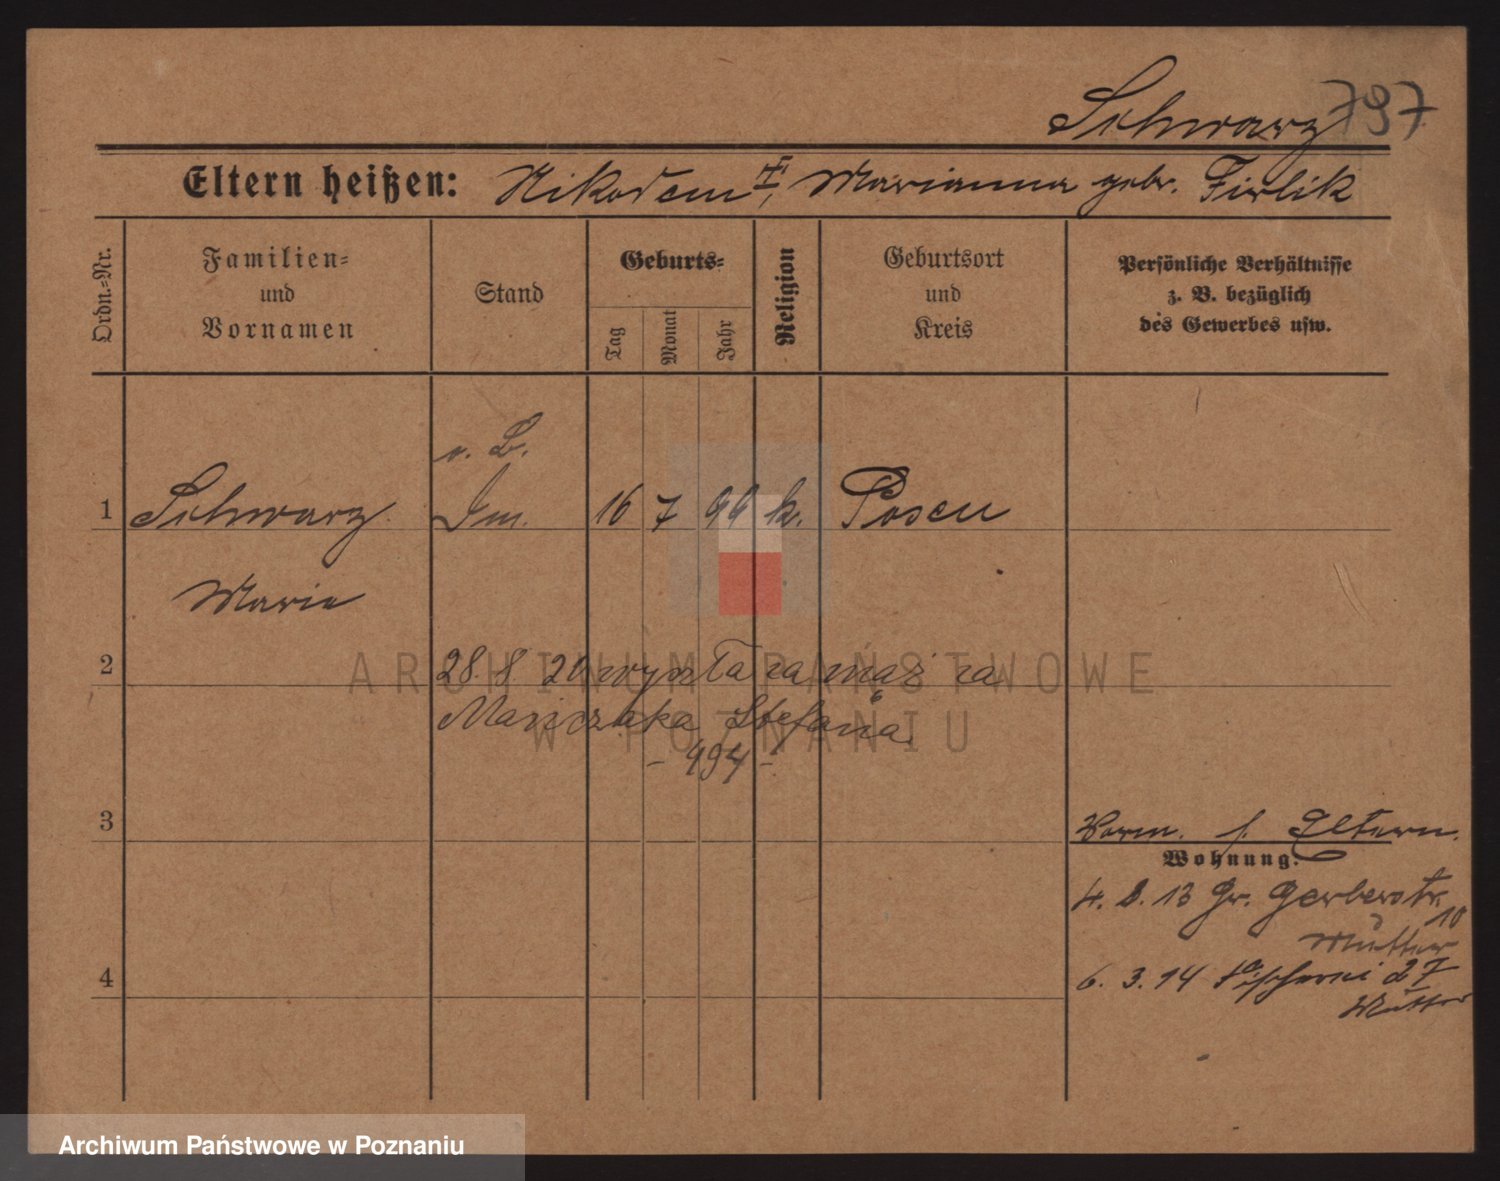 Schwarz 797
Eltern heißen: Nikodem †, Marianna geb. Firlik
Ordn.-Nr.
Familien- und Vornamen
Stand
Geburts-
Tag
Monat
Jahr
Religion
Geburtsort und Kreis
Persönliche Verhältnisse
z. B. bezüglich
des Gewerbes usw.
v. B.
1 Schwarz Dm. 16 7 99 k. Posen
Marie
2 28. 8 20 wyszła za mąż za
Marczaka Stefana
- 994 -
3
Vorm. s. Eltern.
Wohnung:
4. 8. 13 Gr. Gerberstr.
10
Mutter
4
6. 3. 14 Fischerei 27
Mutter
ARCHIWUM PAŃSTWOWE
W POZNANIU
Archiwum Państwowe w Poznaniu